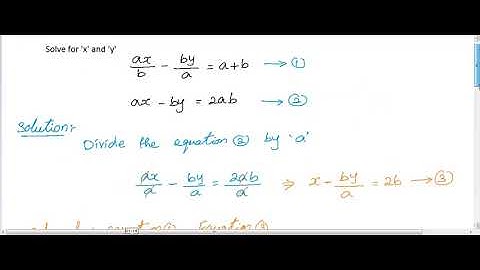 Solve for 'x' and 'y'
ax/b - by/a = a+b → ①
ax - by = 2ab → ②
Solution:
Divide the equation ② by 'a'
ax/a - by/a = 2ab/a ⇒ x - by/a = 2b → ③
Equation ③